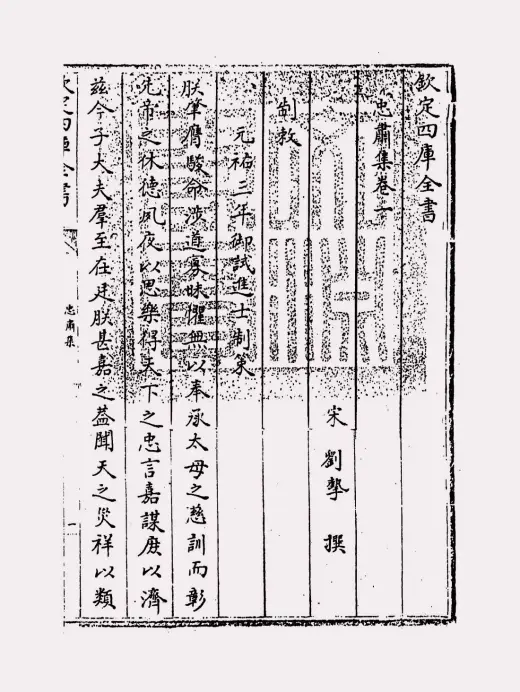 欽定四庫全書
忠肅集卷一
宋 劉摯 撰
制敕
元祐三年御試進士制策
朕肇膺駿命涉道寡昧懼無以奉承太母之慈訓而彰
先帝之休德夙夜以思樂得天下之忠言嘉謀庶以濟
茲今子大夫羣至在廷朕甚嘉之葢聞天之災祥以類
欽定四庫全書
忠肅集
一